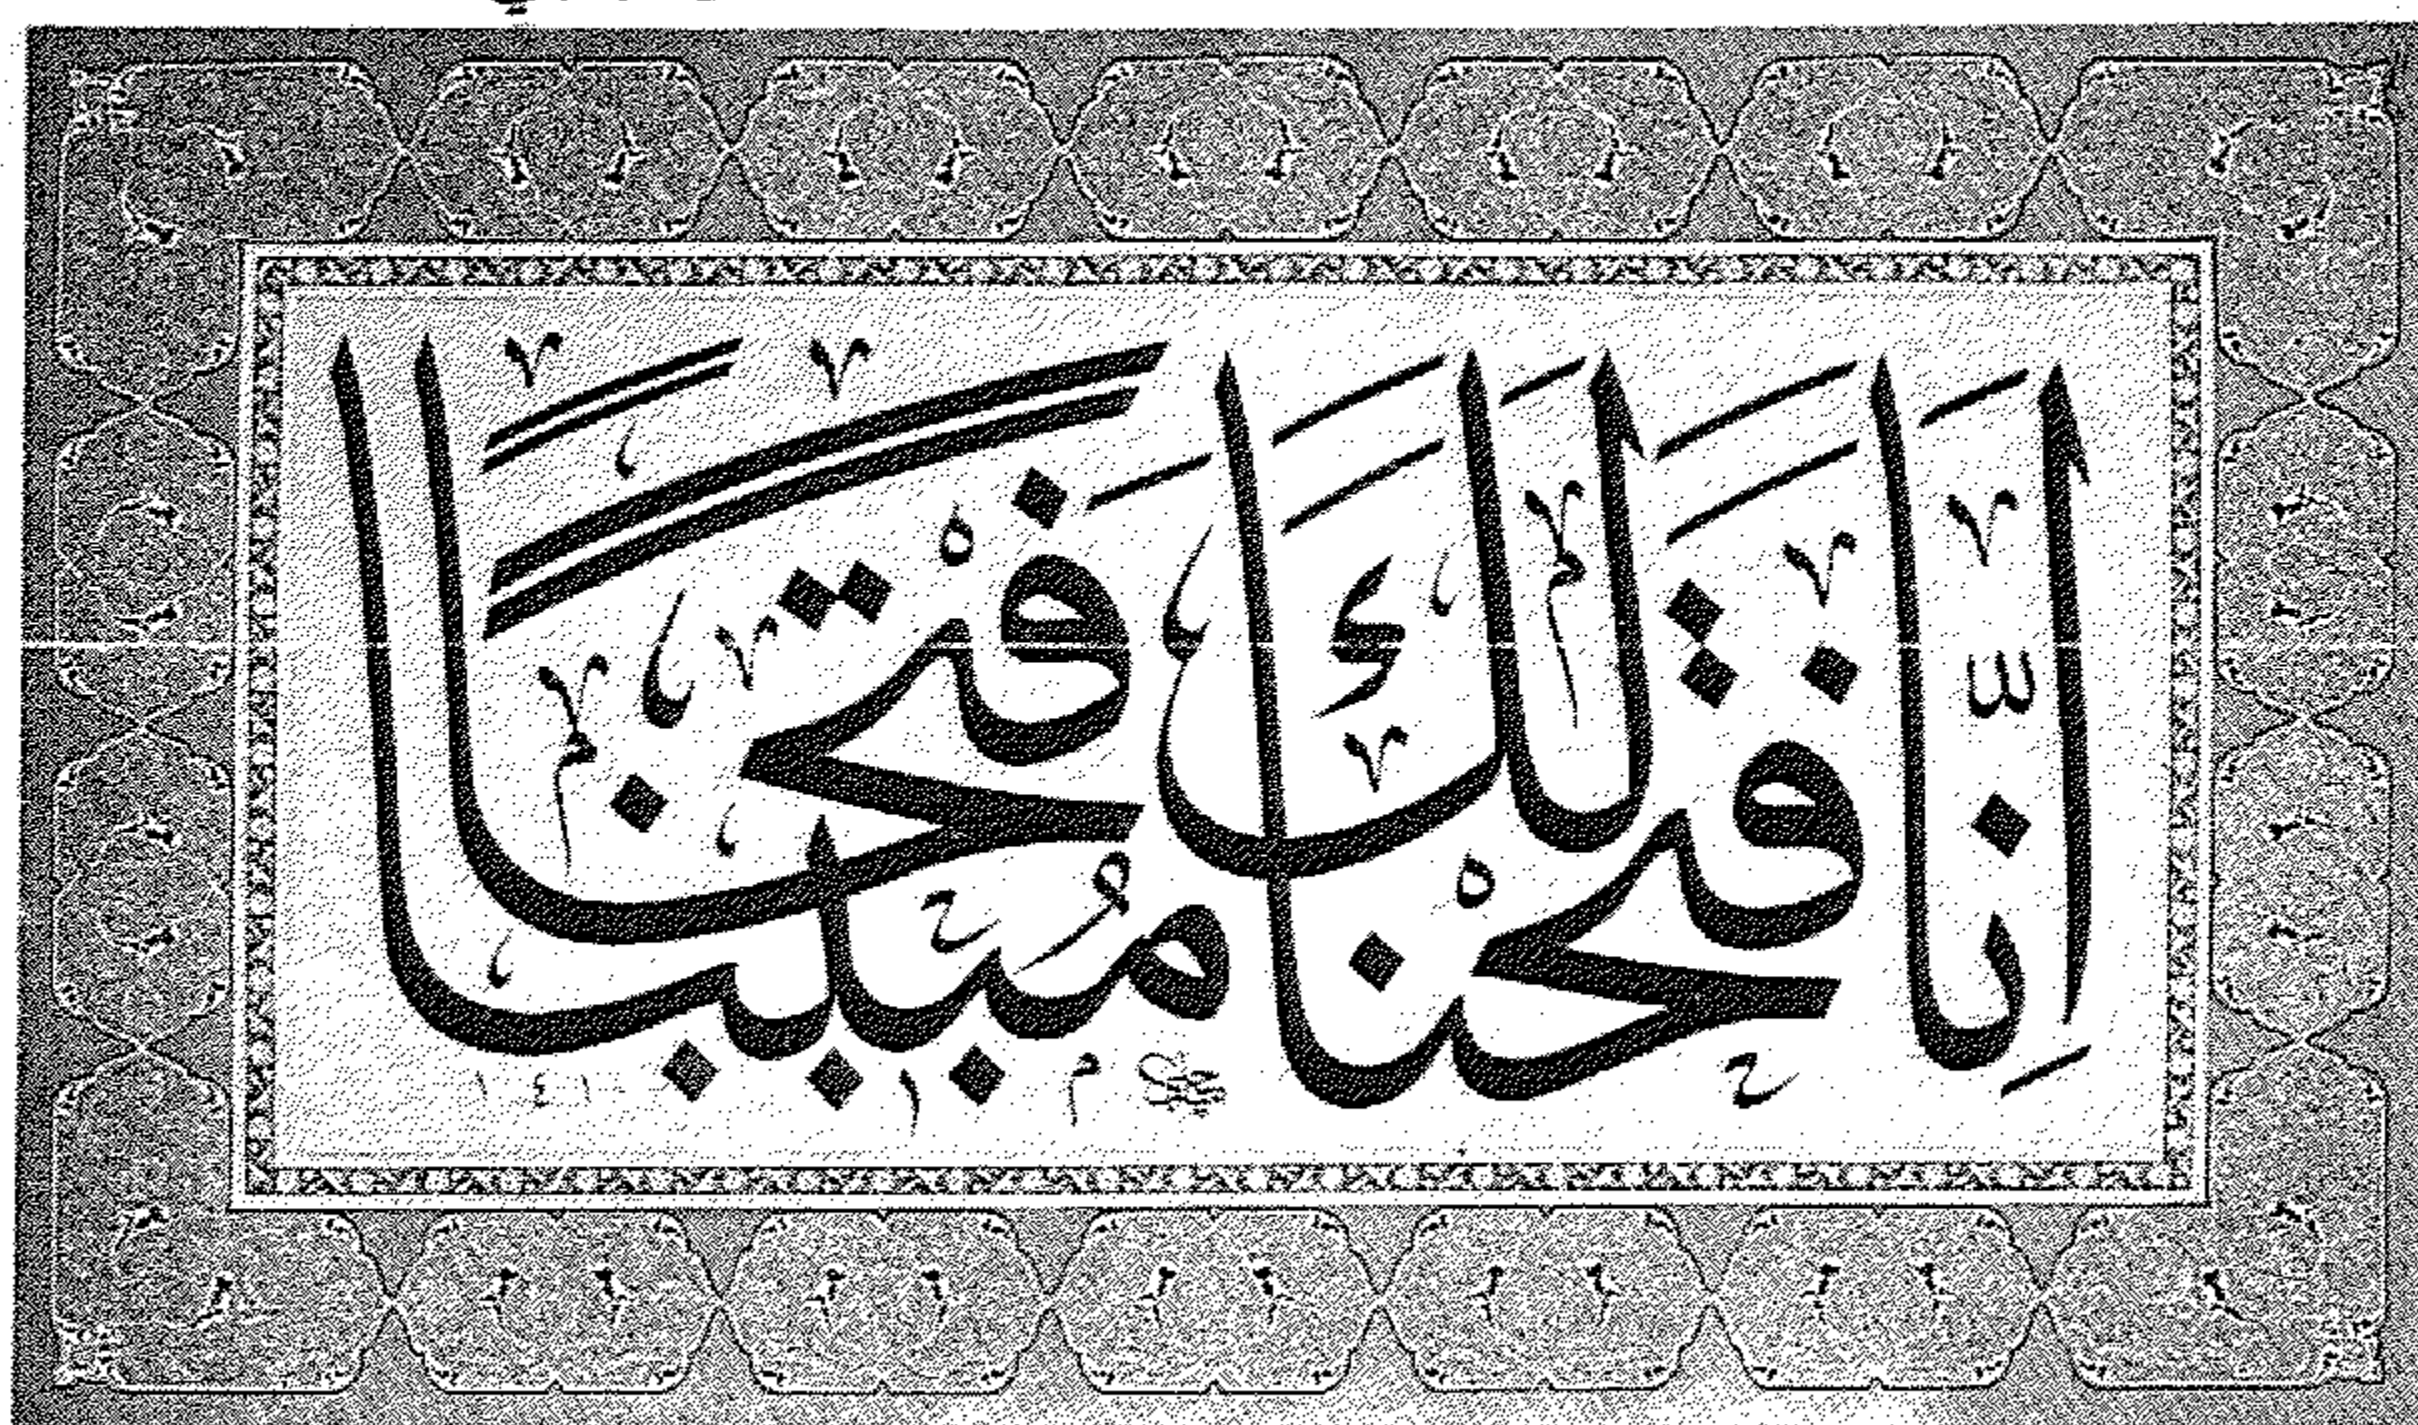 اِنَّا فَتَحْنَا لَكَ فَتْحًا مُبِينًا
١٤١٠